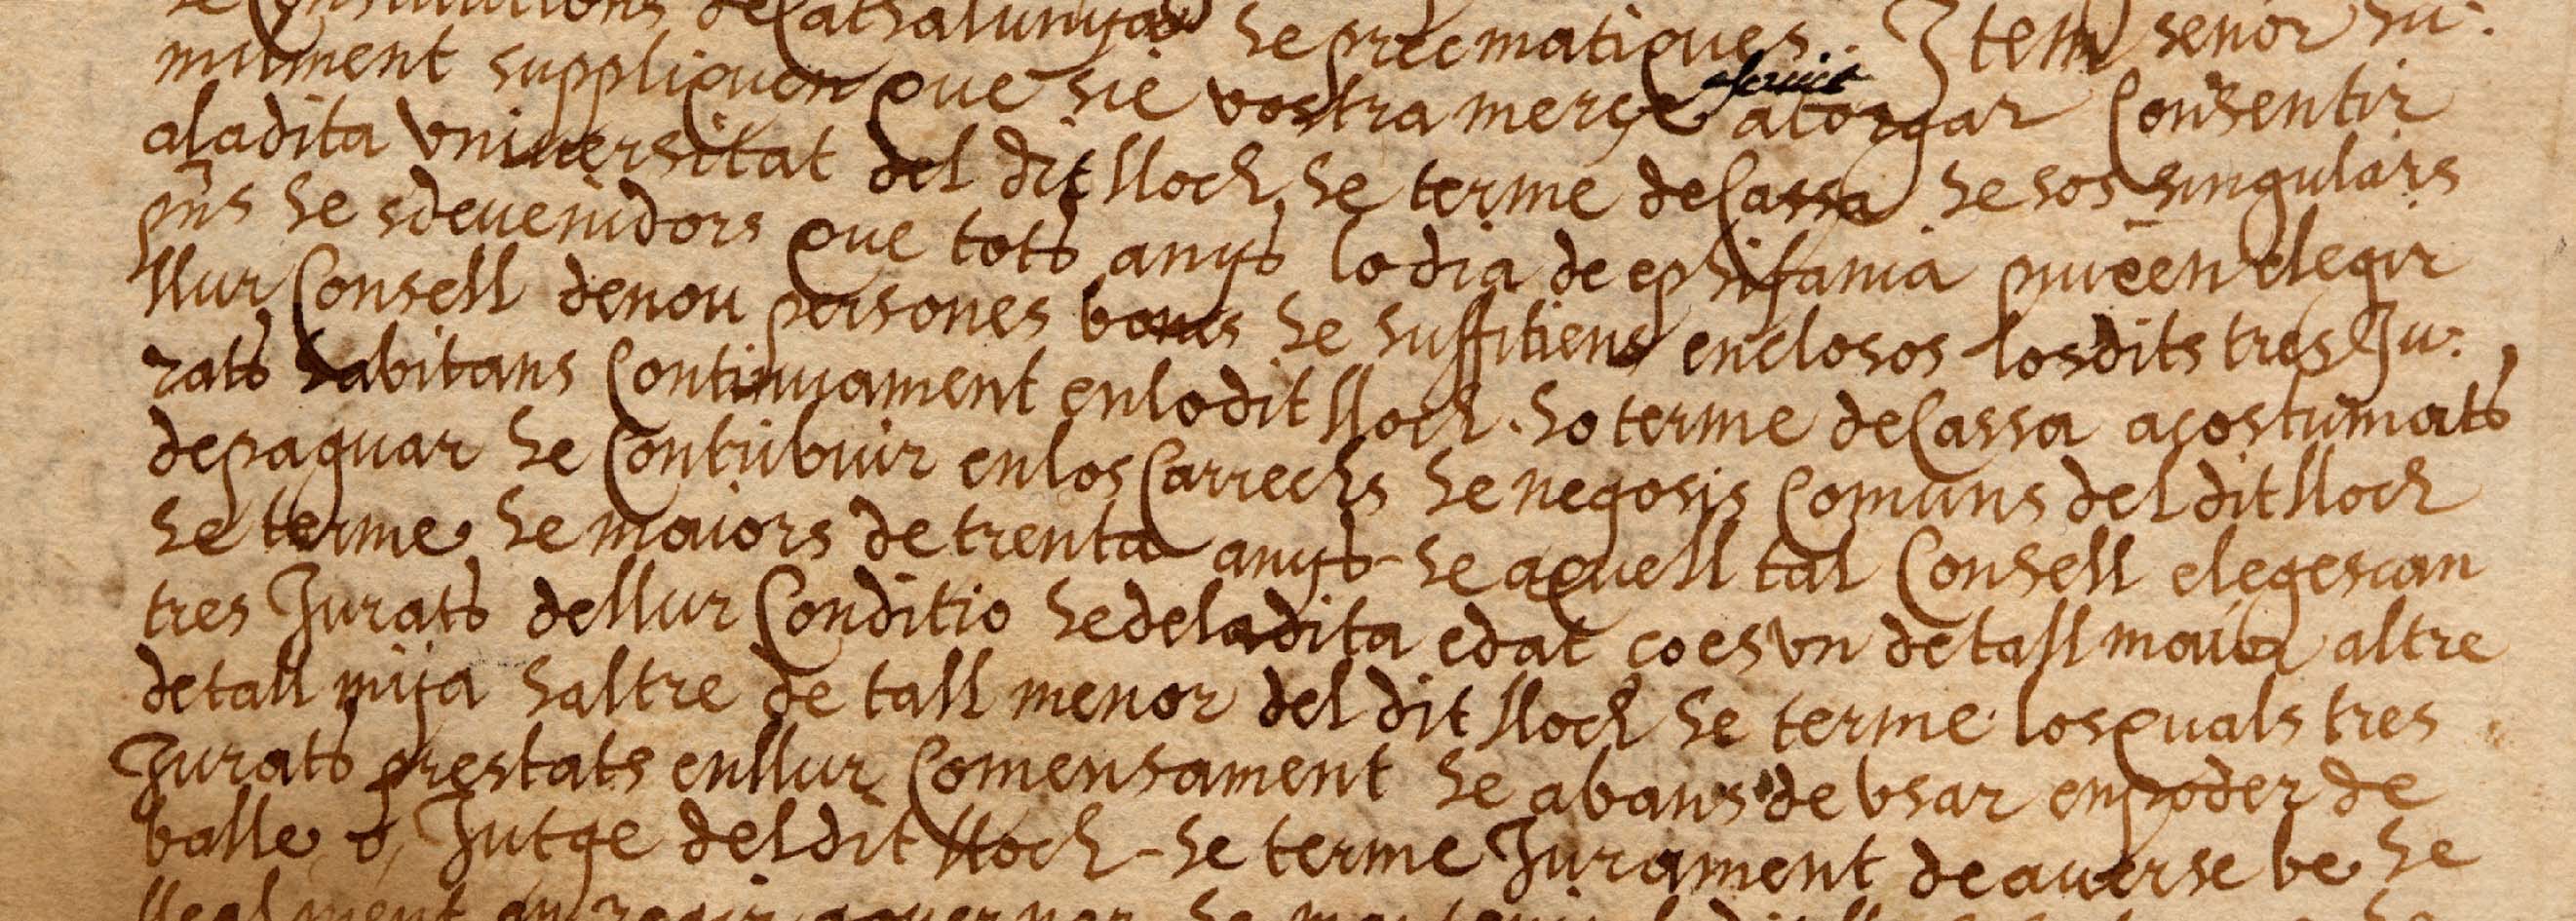 he Constitutions de Cathalunya he precmatiques. Item senor hu-
milment suppliquen que sie vostra merçe atorgar Consentir
aladita vniuersitat del dit lloch he terme deCassa he sos singulars
pñs he sdeuenidors que tots anys lo dia de ephifania puxen elegir
llur Consell denou persones bones he suffitiens enclosos losdits tres Ju-
rats habitans Continuament enlodit lloch ho terme deCassa acostumats
depaguar he Contribuir enlos Carrechs he negosis Comuns del dit lloch
he terme he maiors de trenta anys he aquell tal Consell elegescan
tres Jurats dellur Conditio hedeladita edat ço es vn detall maior altre
detall mija haltre de tall menor del dit lloch he terme losquals tres
Jurats prestats enllur Comensament he abans de vsar enpoder de
balle o Jutge deldit lloch he terme Jurament de auerse be he